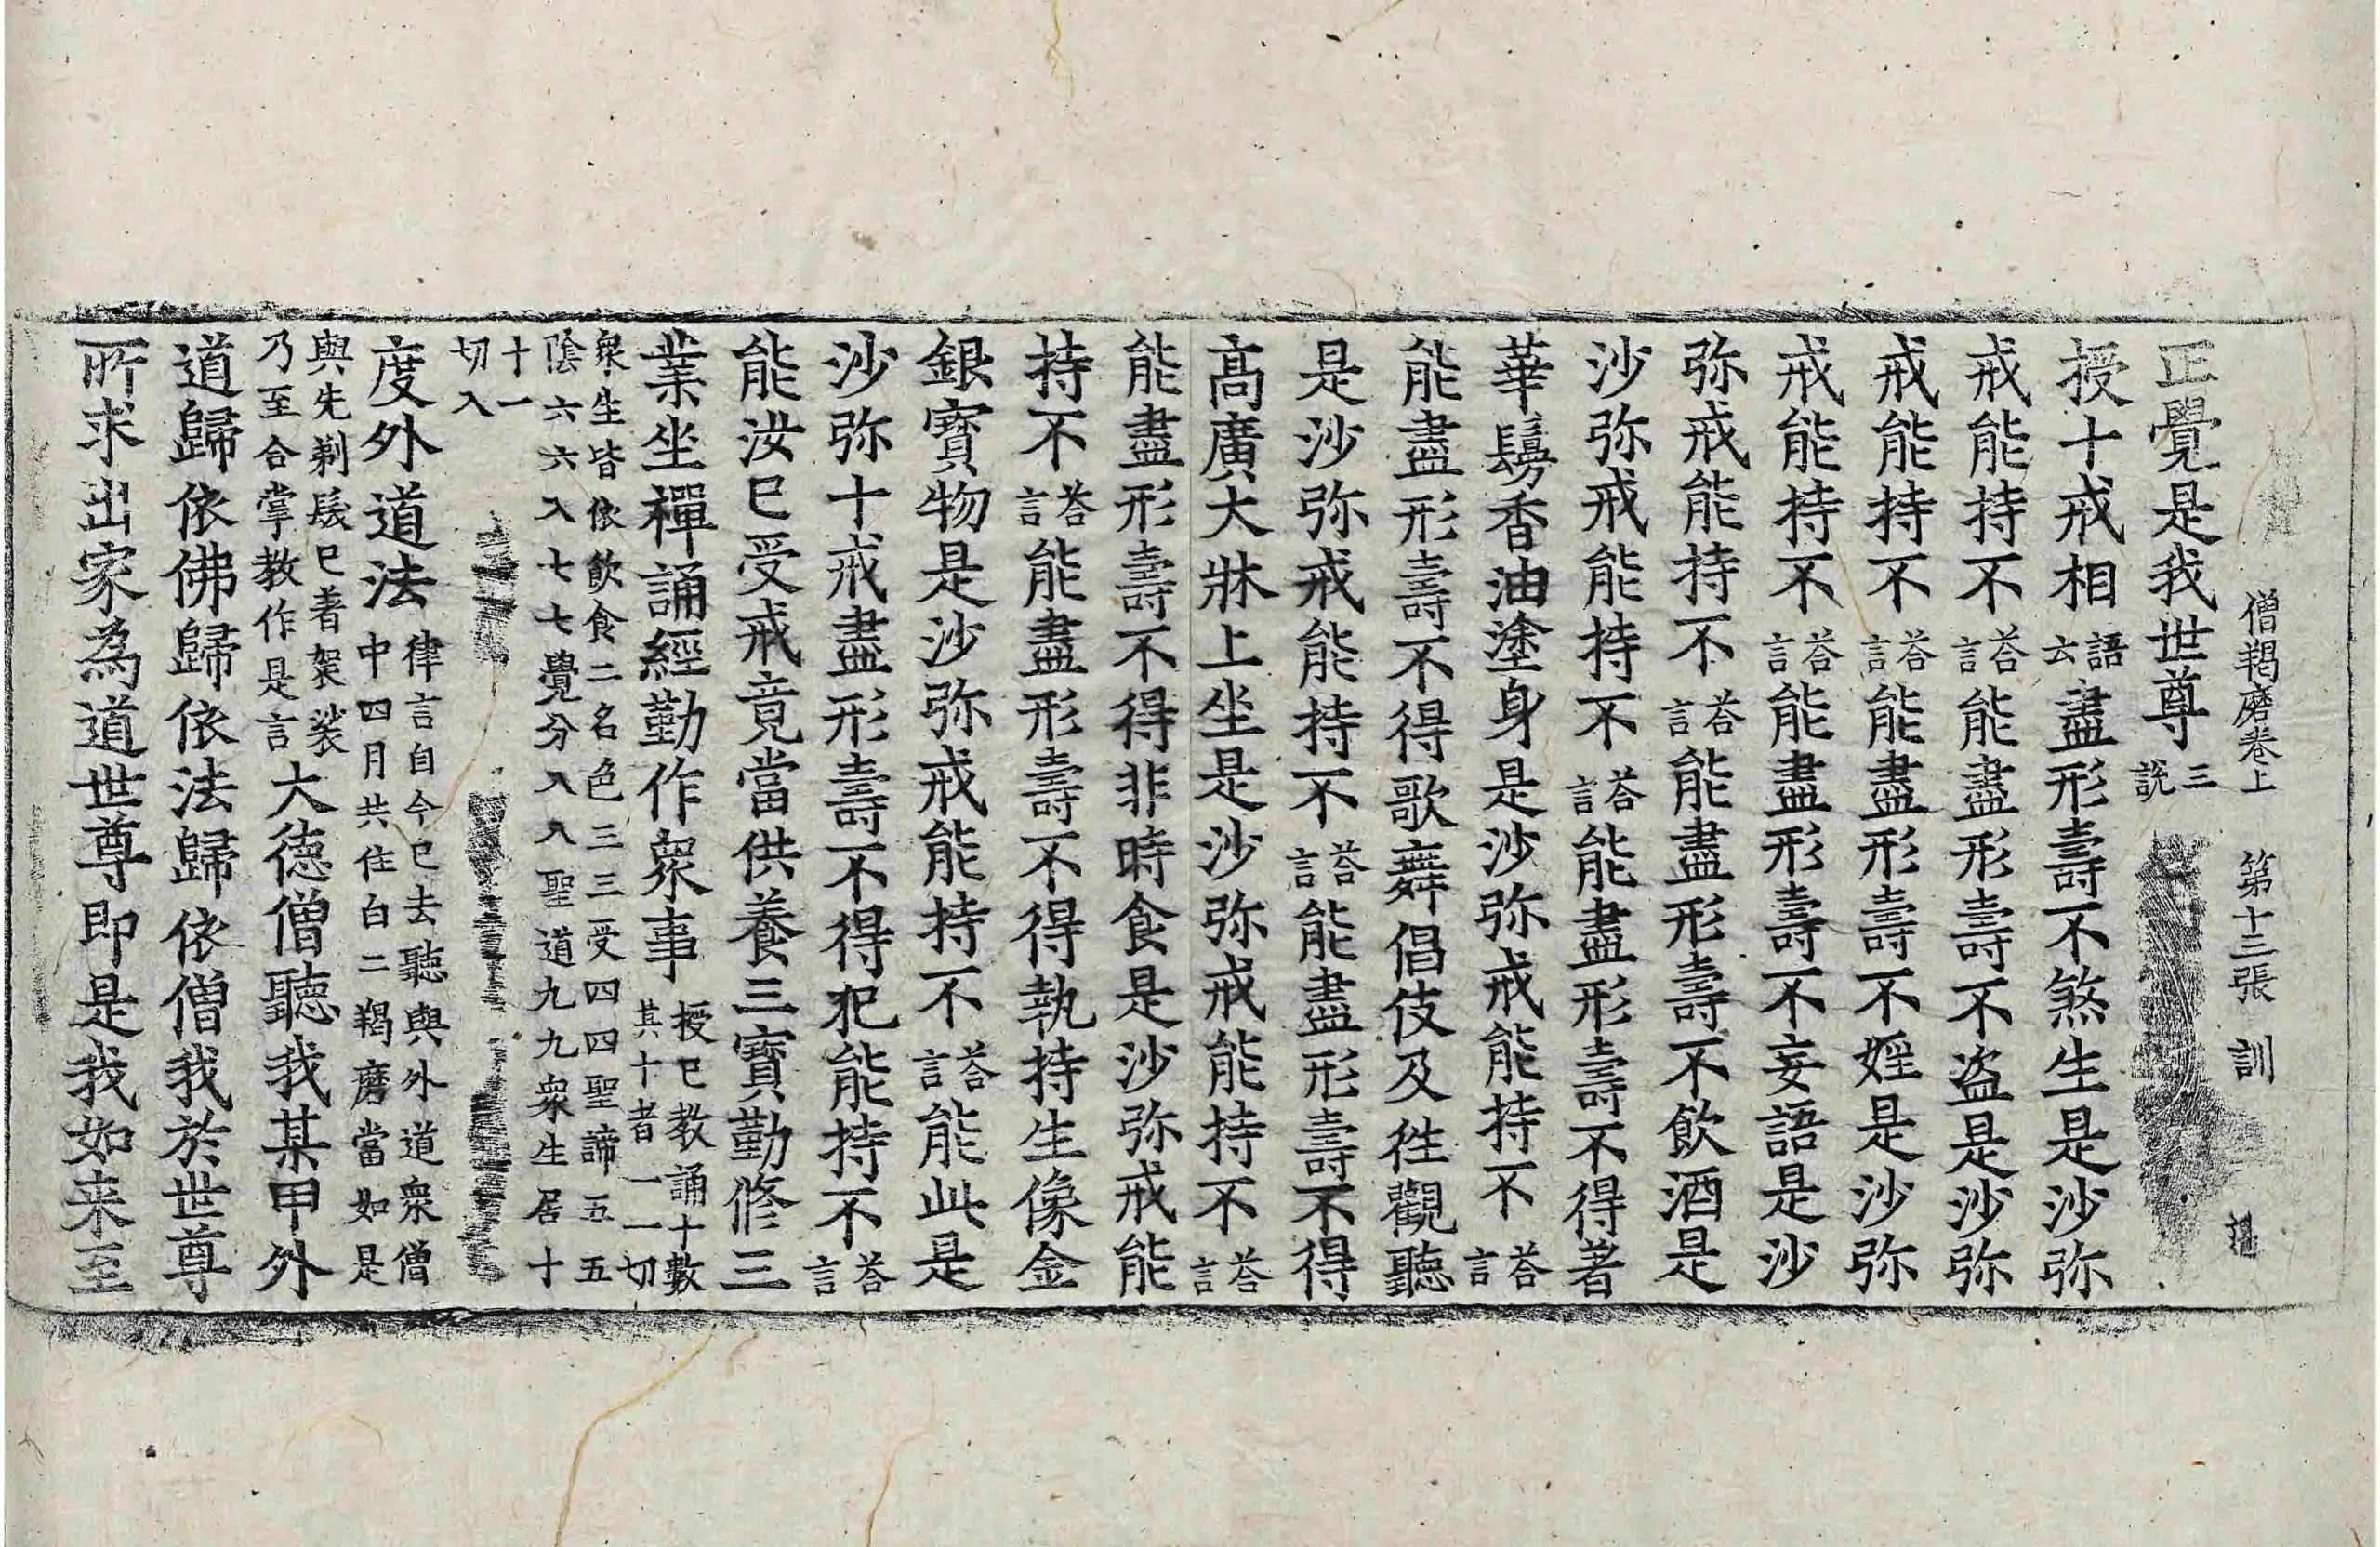 僧羯磨卷上 第十三張 訓
正覺是我世尊三說
授十戒相語云盡形壽不煞生是沙弥
戒能持不荅言能盡形壽不盜是沙弥
戒能持不荅言能盡形壽不婬是沙弥
戒能持不荅言能盡形壽不妄語是沙
弥戒能持不荅言能盡形壽不飲酒是
沙弥戒能持不荅言能盡形壽不得著
華鬘香油塗身是沙弥戒能持不荅言
能盡形壽不得歌舞倡伎及往觀聽
是沙弥戒能持不荅言能盡形壽不得
高廣大牀上坐是沙弥戒能持不荅言
能盡形壽不得非時食是沙弥戒能
持不荅言能盡形壽不得執持生像金
銀寶物是沙弥戒能持不荅言能此是
沙弥十戒盡形壽不得犯能持不荅言
能汝已受戒竟當供養三寶勤修三
業坐禪誦經勤作衆事授已教誦十數其十者一一切
衆生皆依飲食二名色三三受四四聖諦五五
陰六六入七七覺分八八聖道九九衆生居十
十一
切入
度外道法律言自今已去聽與外道衆僧中四月共住白二羯磨當如是
與先剃髮已著袈裟乃至合掌教作是言大德僧聽我某甲外
道歸依佛歸依法歸依僧我於世尊
所求出家為道世尊即是我如来至